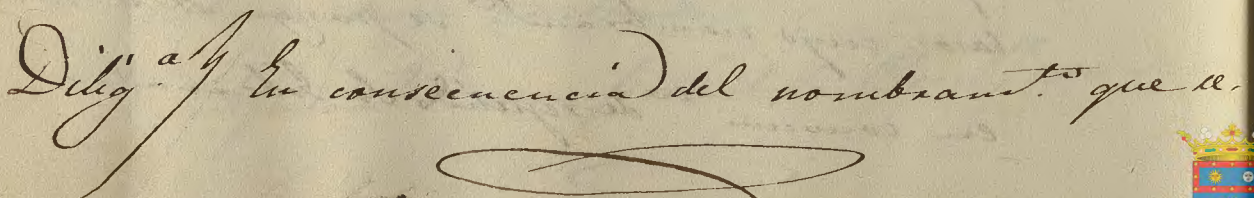 Dilig.ª En consecuencia del nombramt.º que se